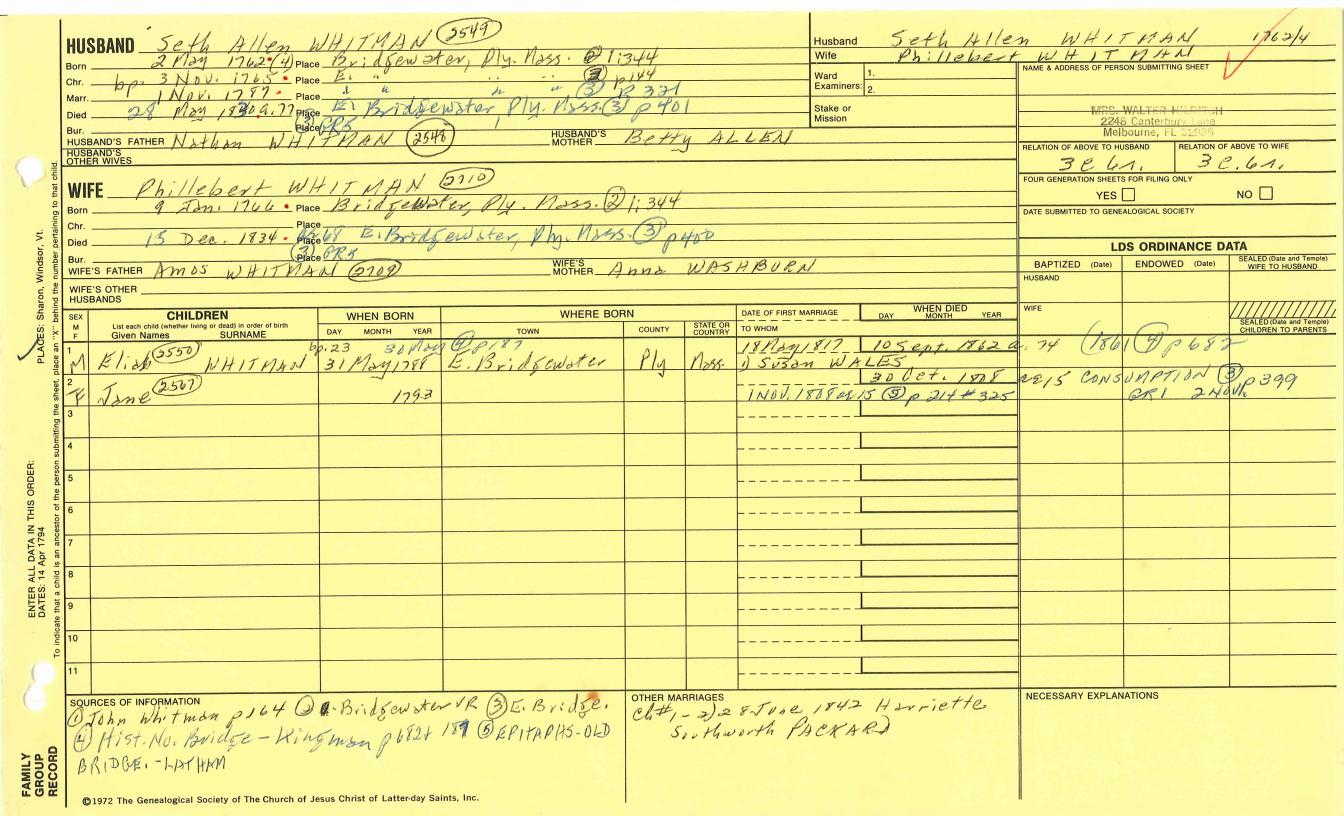 HUSBAND Seth Allen WHITMAN 2549
Born 2 May 1762 (4) Place Bridgewater, Ply. Mass. ② 1:344
Chr. bp. 3 Nov. 1765 Place E. " " " ③ p144
Marr. 1 Nov. 1787 Place " " " " ③ p 321
Died 28 May a.77 Place E. Bridgewater Ply. Mass. ③ p401
Bur. Place ③ GR5
HUSBAND'S FATHER Nathan WHITMAN 2548 HUSBAND'S MOTHER Betty ALLEN
HUSBAND'S OTHER WIVES
Husband Seth Allen WHITMAN 1762/4
Wife Phillebert WHITMAN
Ward Examiners: 1.
2.
Stake or Mission
NAME & ADDRESS OF PERSON SUBMITTING SHEET
MRS. WALTER
2246 Canterbury Lane
Melbourne, FL
RELATION OF ABOVE TO HUSBAND RELATION OF ABOVE TO WIFE
3 c. 6r. 3 c. 6r.
FOUR GENERATION SHEETS FOR FILING ONLY
YES NO
DATE SUBMITTED TO GENEALOGICAL SOCIETY
WIFE Phillebert WHITMAN 2710
Born 9 Jan. 1766 Place Bridgewater, Ply. Mass. ② 1:344
Chr. Place
Died 15 Dec. 1834 Place ae 68 E. Bridgewater, Ply. Mass. ③ p400
Bur. Place ③ GR5
WIFE'S FATHER Amos WHITMAN 2709 WIFE'S MOTHER Anna WASHBURN
WIFE'S OTHER HUSBANDS
LDS ORDINANCE DATA
BAPTIZED (Date) ENDOWED (Date) SEALED (Date and Temple) WIFE TO HUSBAND
HUSBAND
WIFE
SEALED (Date and Temple) CHILDREN TO PARENTS
SEX M F CHILDREN WHEN BORN WHERE BORN DATE OF FIRST MARRIAGE WHEN DIED
List each child (whether living or dead) in order of birth
Given Names SURNAME DAY MONTH YEAR TOWN COUNTY STATE OR COUNTRY TO WHOM DAY MONTH YEAR
bp. 23 30 May ④ p187 18 May 1817 10 Sept. 1862 a. 74 (1861 ④ p 682
1 M Eliab 2550 WHITMAN 31 May 1788 E. Bridgewater Ply Mass. 1) Susan WALES
30 Oct. 1808 ae 15 CONSUMPTION ③ p399
2 F Jane 2567 1793 1 NOV. 1808 ae 15 ⑤ p 214 #325 GR1 2 Nov.
3
4
5
6
7
8
9
10
11
SOURCES OF INFORMATION
① John Whitman p164 ② Bridgewater VR ③ E. Bridge.
④ Hist. No. Bridge - Kingman p 682+ 187 ⑤ EPITAPHS-OLD
BRIDGE. - LATHAM
OTHER MARRIAGES
ch#1-2) 28 June 1842 Harriette
Southworth PACKARD
NECESSARY EXPLANATIONS
©1972 The Genealogical Society of The Church of Jesus Christ of Latter-day Saints, Inc.
FAMILY GROUP RECORD
ENTER ALL DATA IN THIS ORDER:
DATES: 14 Apr 1794
PLACES: Sharon, Windsor, Vt.
To indicate that a child is an ancestor of the person submitting the sheet, place an "X" behind the number pertaining to that child.